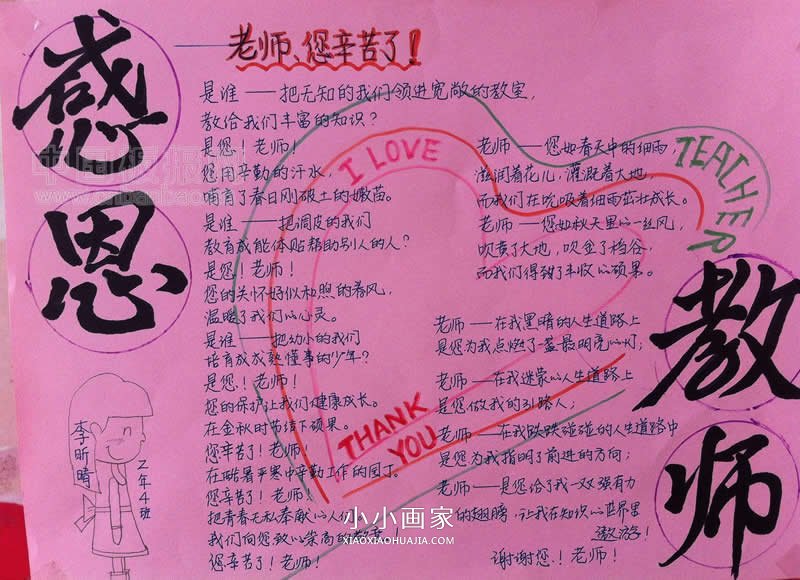 感恩
教师
老师、您辛苦了！
是谁——把无知的我们领进宽敞的教室，
教给我们丰富的知识？
是您！老师！
您用辛勤的汗水，
哺育了春日刚破土的嫩苗。
是谁——把调皮的我们
教育成能体贴帮助别人的人？
是您！老师！
您的关怀好似和煦的春风，
温暖了我们心灵。
是谁——把幼小的我们
培育成成熟懂事的少年？
是您！老师！
您的保护让我们健康成长。
在金秋时节结下硕果。
您辛苦了！老师！
在酷暑严寒中辛勤工作的园丁。
您辛苦了！老师！
把青春无私奉献的人们
我们向您致以崇高的
您辛苦了！老师！
老师——您如春天中的细雨，
滋润着花儿，灌溉着大地，
而我们在吮吸着细雨茁壮成长。
老师——您如秋天里的一丝风，
吹黄了大地，吹金了稻谷，
而我们得到了丰收的硕果。
老师——在我黑暗的人生道路上
是您为我点燃了一盏最明亮的灯；
老师——在我迷蒙的人生道路上
是您做我的引路人；
老师——在我跌跌碰碰的人生道路中
是您为我指明了前进的方向；
老师——是您给了我一双强有力
的翅膀，让我在知识的世界里
遨游！
谢谢您！老师！
I LOVE
TEACHER
THANK
YOU
李昕晴
2年4班
小小画家
XIAOXIAOHUAJIA.COM